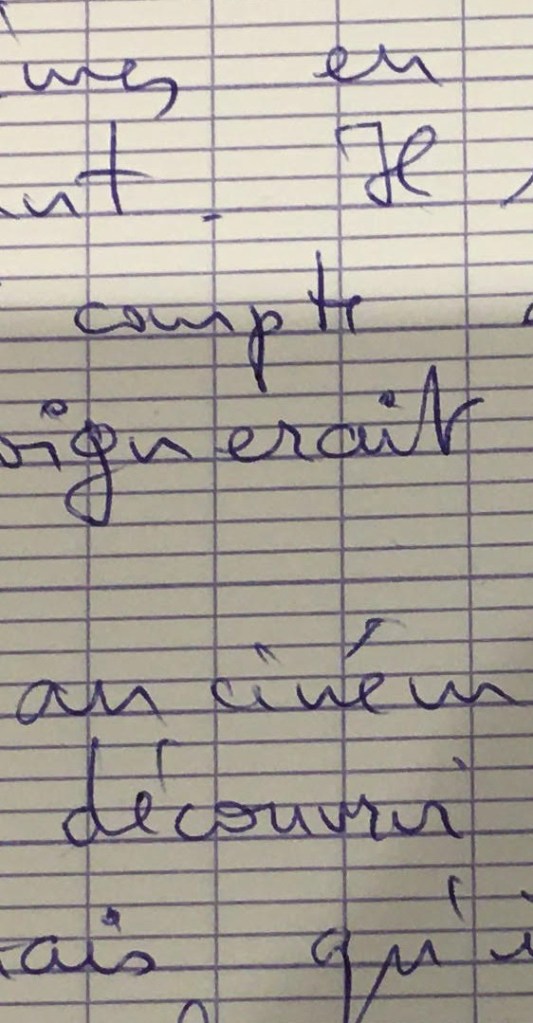 mes en
ant. Il
compte
oignerait
au ciném
découvrir
ais qu'i